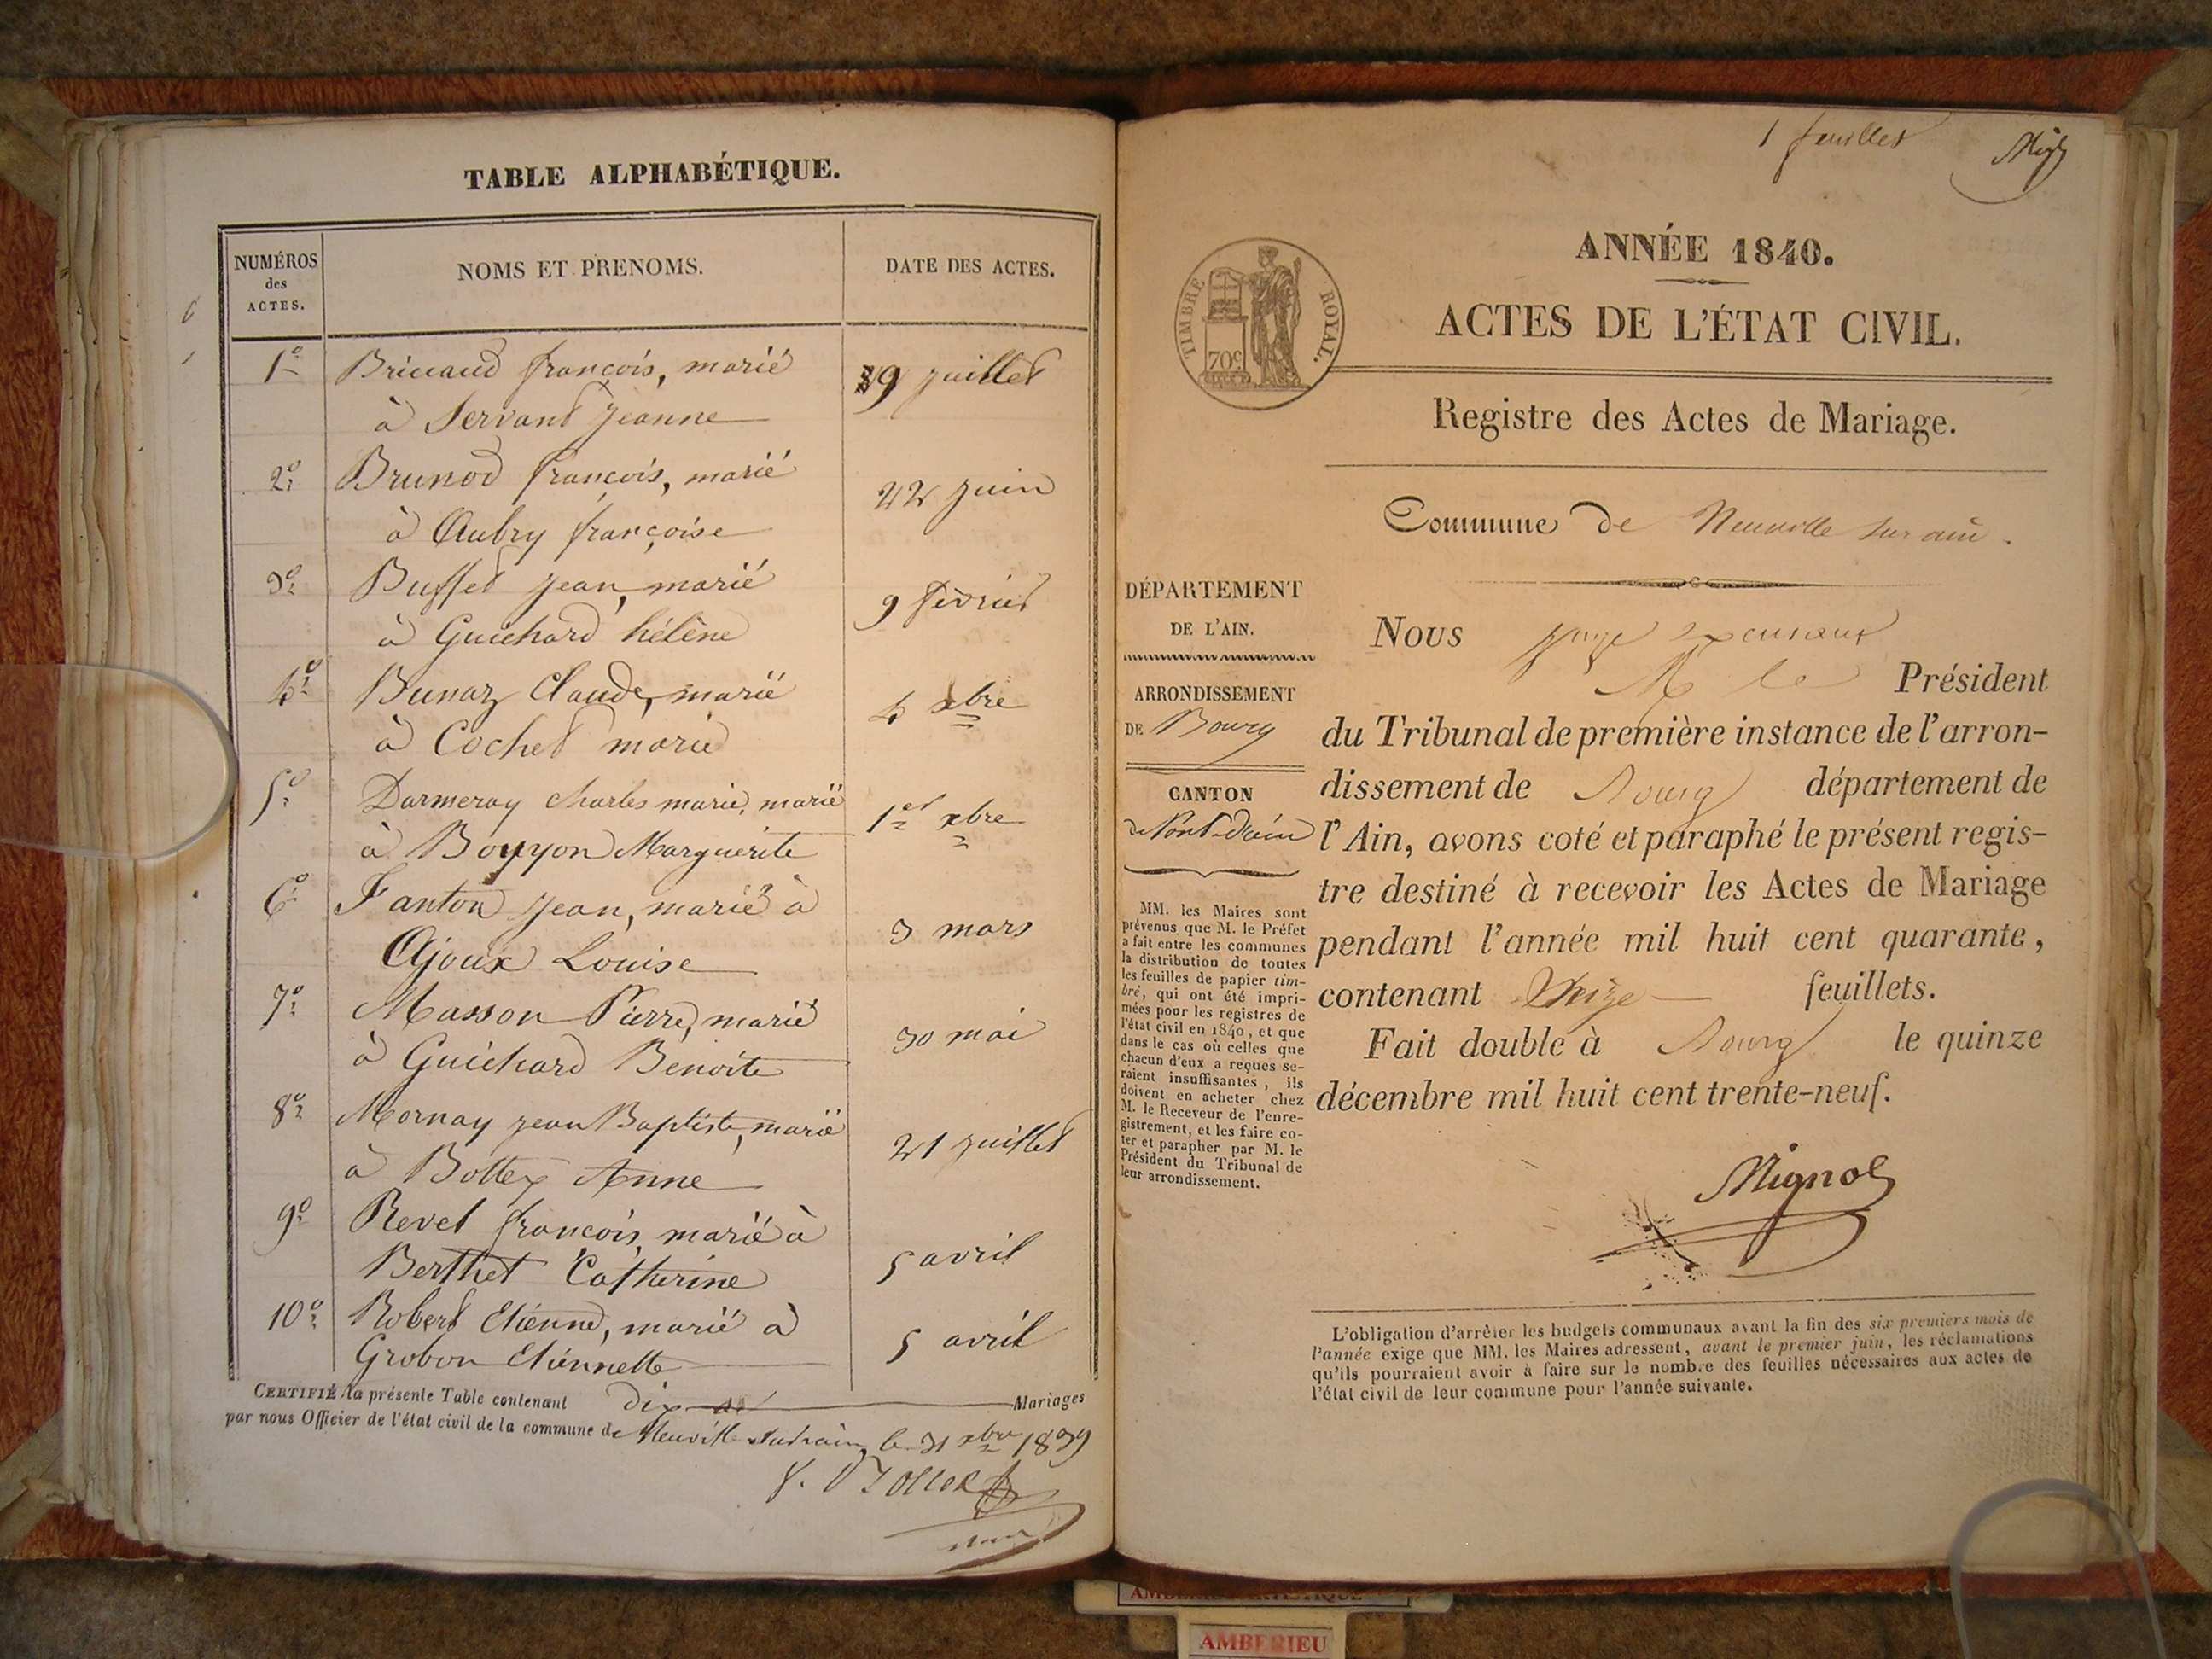 TABLE ALPHABÉTIQUE.
NUMÉROS
des
ACTES.
NOMS ET PRENOMS.
DATE DES ACTES.
1º Briccaud françois, marié
à Servant Jeanne
9 juillet
2º Brunod françois, marié
à Aubry françoise
22 juin
3º Buffet Jean, marié
à Guichard hélène
9 février
4º Bunaz Claude, marié
à Cochet marie
4 xbre
5º Darmeray charles marie, marié
à Bouyyon Marguerite
1er xbre
6º Fanton Jean, marié à
Ajoux Louise
3 mars
7º Masson Pierre, marié
à Guichard Benoite
30 mai
8º Mornay jean Baptiste, marié
à Bottex Anne
21 juillet
9º Revel françois, marié à
Berthet Catherine
5 avril
10º Robert Etienne, marié à
Grobon Etiennette
5 avril
CERTIFIÉ la présente Table contenant dix Mariages
par nous Officier de l'état civil de la commune de Neuville sur ain, le 31 xbre 1839
1 feuillet
ANNÉE 1840.
TIMBRE ROYAL.
70c
ACTES DE L'ÉTAT CIVIL.
Registre des Actes de Mariage.
Commune de Neuville sur ain.
DÉPARTEMENT
DE L'AIN.
ARRONDISSEMENT
DE Bourg
CANTON
de Pont-d'ain
MM. les Maires sont
prévenus que M. le Préfet
a fait entre les communes
la distribution de toutes
les feuilles de papier tim-
bré, qui ont été impri-
mées pour les registres de
l'état civil en 1840, et que
dans le cas où celles que
chacun d'eux a reçues se-
raient insuffisantes, ils
doivent en acheter chez
M. le Receveur de l'enre-
gistrement, et les faire co-
ter et parapher par M. le
Président du Tribunal de
leur arrondissement.
Nous juge
M le Président
du Tribunal de première instance de l'arron-
dissement de Bourg département de
l'Ain, avons coté et paraphé le présent regis-
tre destiné à recevoir les Actes de Mariage
pendant l'année mil huit cent quarante,
contenant feuillets.
Fait double à Bourg le quinze
décembre mil huit cent trente-neuf.
Mignot
L'obligation d'arrêter les budgets communaux avant la fin des six premiers mois de
l'année exige que MM. les Maires adressent, avant le premier juin, les réclamations
qu'ils pourraient avoir à faire sur le nombre des feuilles nécessaires aux actes de
l'état civil de leur commune pour l'année suivante.
AMBERIEU